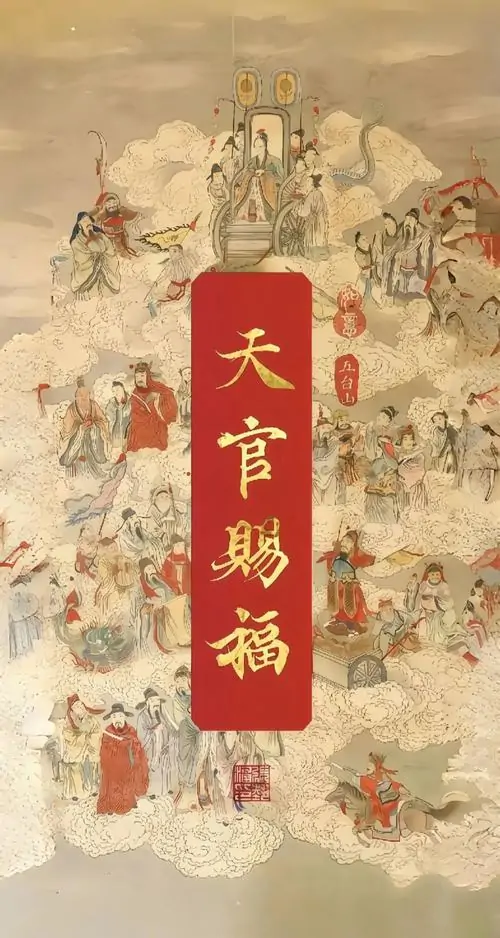 天官賜福
五台山